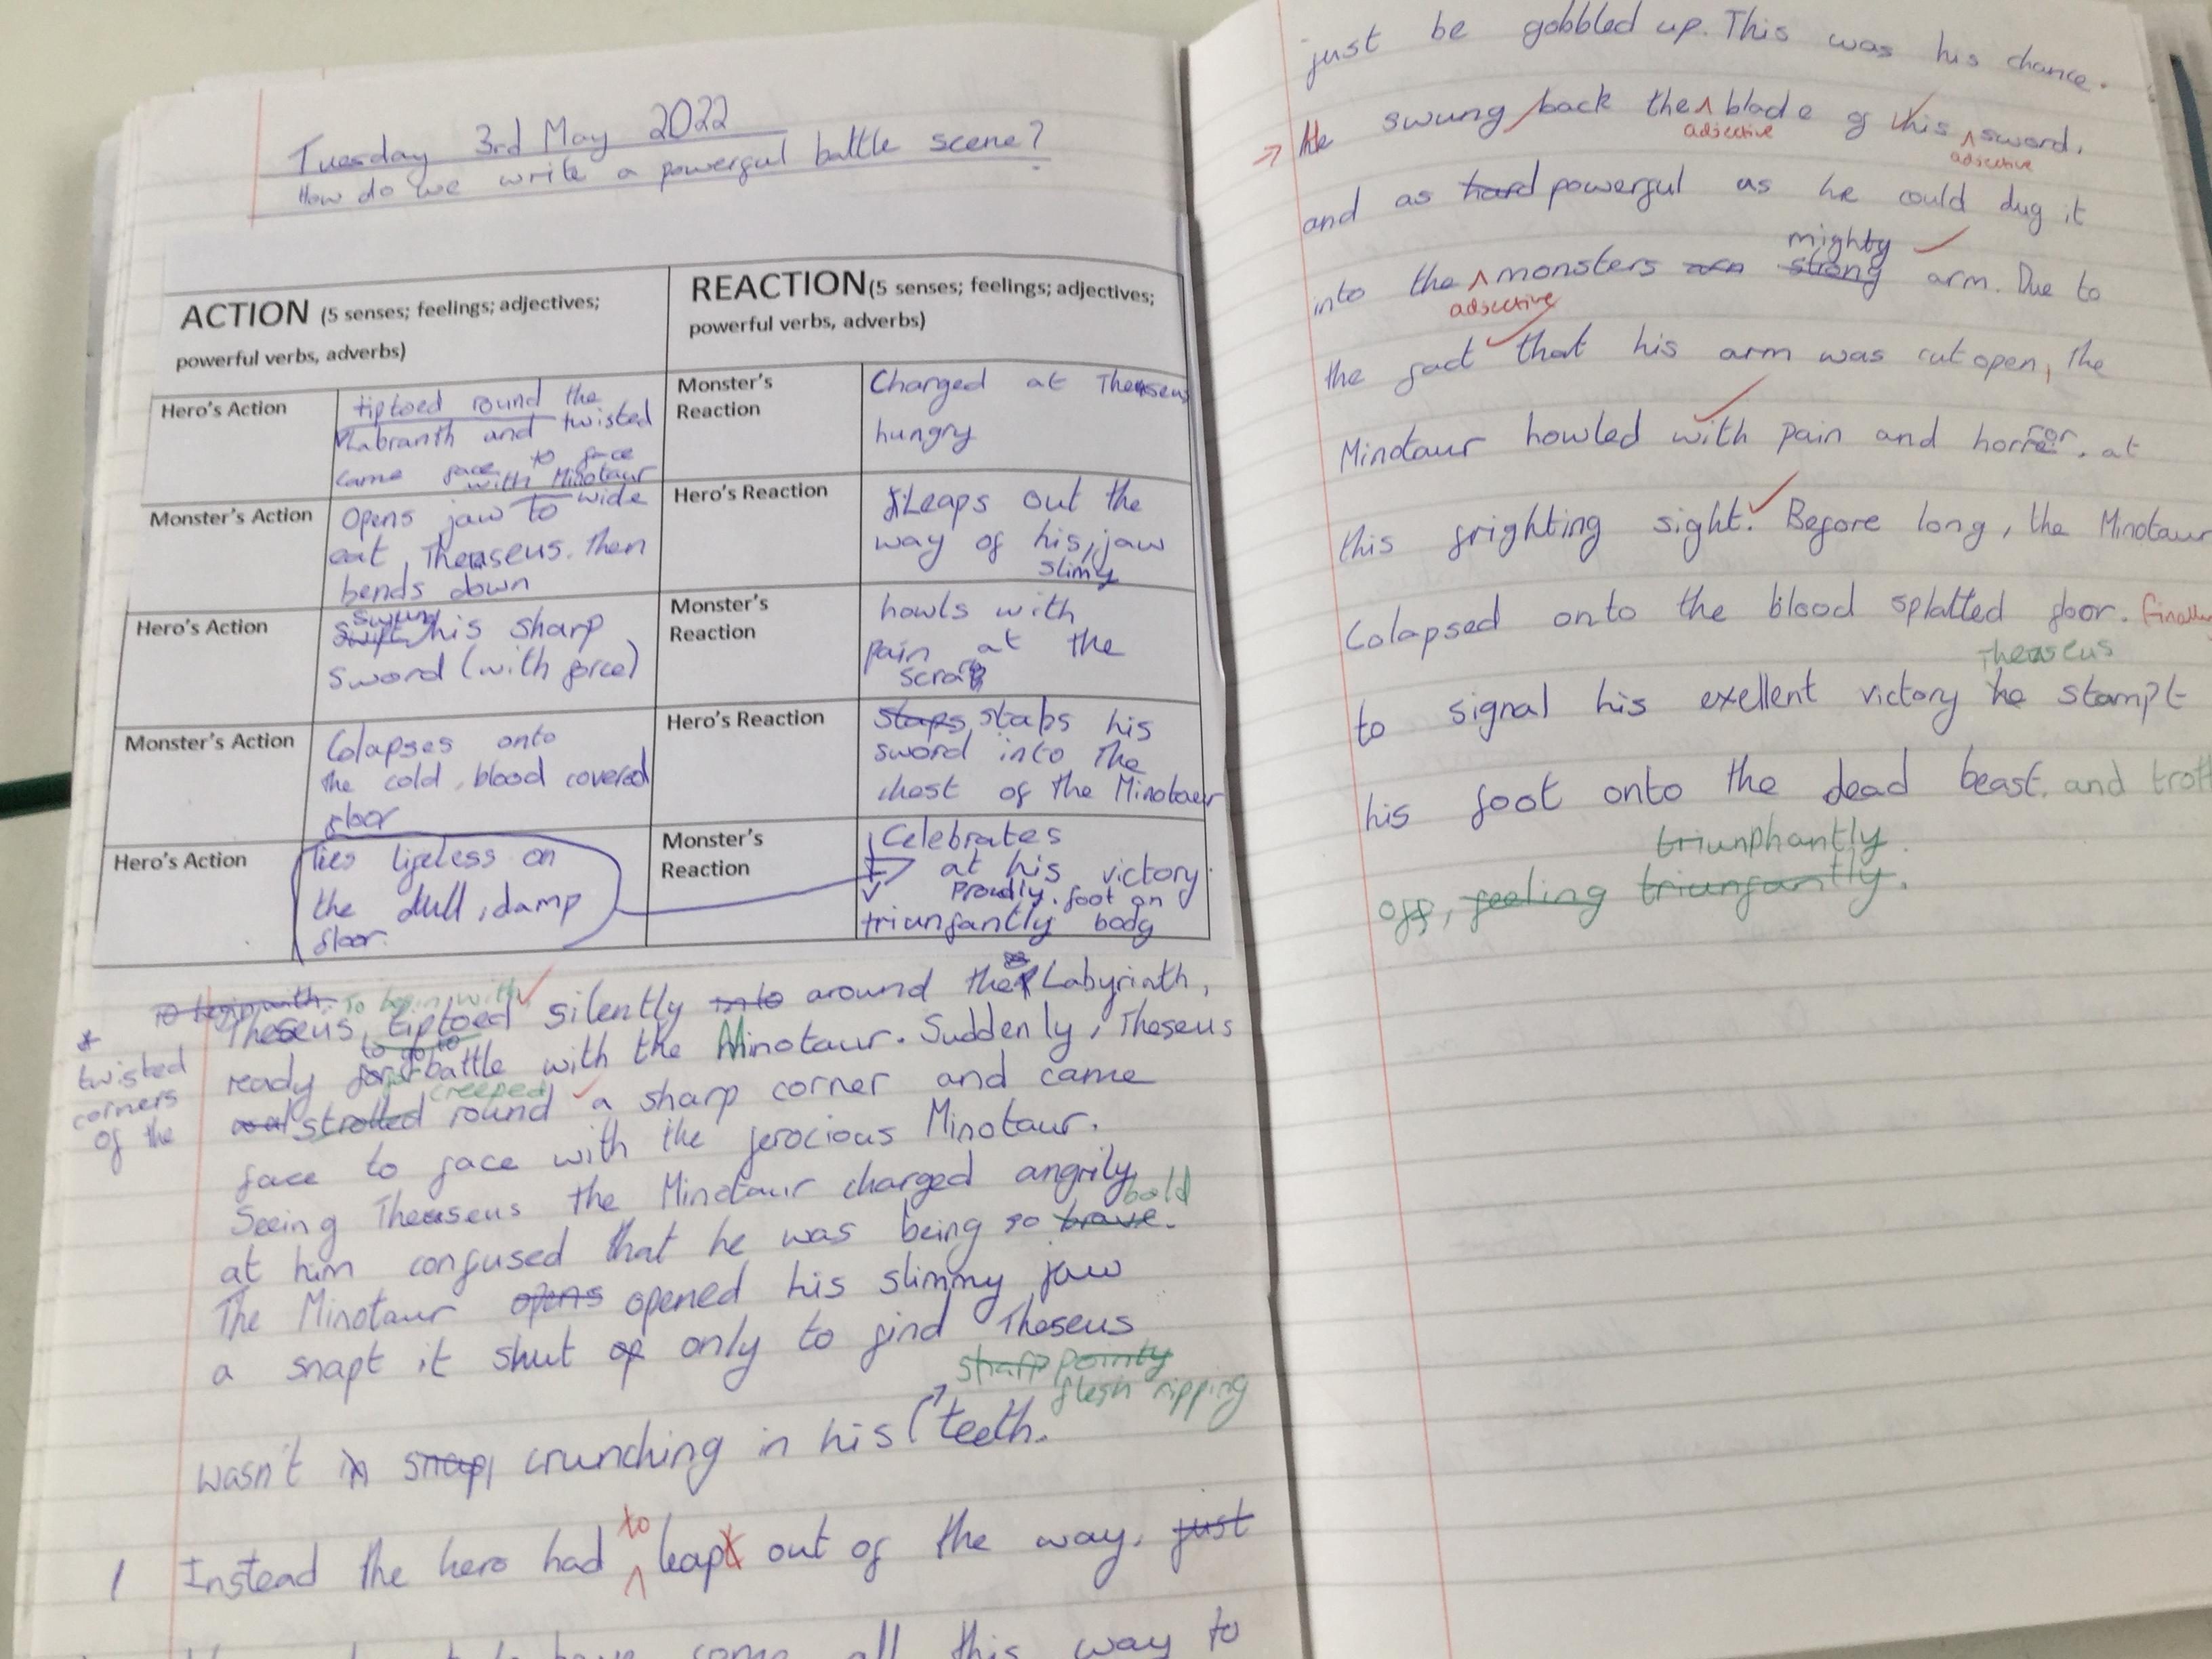 Tuesday 3rd May 2022
How do we write a powerful battle scene?
ACTION (5 senses; feelings; adjectives;
powerful verbs, adverbs)
REACTION (5 senses; feelings; adjectives;
powerful verbs, adverbs)
Hero's Action
tiptoed round the
Labranth and twisted
came face to face
with Minotaur
Monster's
Reaction
Charged at Theaseus
hungry
Monster's Action
Opens jaw to wide
eat Theaseus. Then
bends down
Hero's Reaction
Leaps out the
way of his jaw
slimy
Hero's Action
swung
swift his sharp
sword (with force)
Monster's
Reaction
howls with
pain at the
Monster's Action
Colapses onto
the cold, blood covered
floor
Hero's Reaction
staps stabs his
sword into the
chest of the Minotaur
Hero's Action
lies lifeless on
the dull, damp
floor.
Monster's
Reaction
Celebrates
at his victory
Proudly. foot on
triunfantly body
To begin with, To begin with
Theseus tiptoed silently into around the Labyrinth,
*
twisted
corners
of the
to go to
ready for battle with the Minotaur. Suddenly, Theseus
creeped
strolled round a sharp corner and came
face to face with the ferocious Minotaur.
Seeing Theaseus the Minotaur charged angrily
bold
at him confused that he was being so brave.
The Minotaur opens opened his slimmy jaw
a snapt it shut of only to find Theseus
sharp pointy
flesh ripping
wasn't in snap, crunching in his teeth.
to
1 Instead the hero had leapt out of the way. just
come all this way to
just be gobbled up. This was his chance.
He swung back the blade of this sword,
adjective
adjective
and as hard powerful as he could dug it
mighty
into the monsters arm strong arm. Due to
adjective
the fact that his arm was cut open, the
Minotaur howled with pain and horror. at
this frighting sight. Before long, the Minotaur
Colapsed onto the blood splatted floor. Finally
Theaseus
to signal his exellent victory he stampt
his foot onto the dead beast. and trott
triunphantly.
off, feeling triunfantly.